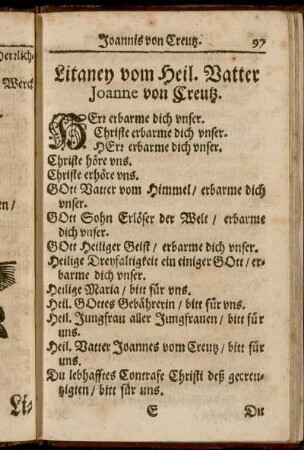 Joannis von Creutz. 97
Litaney vom Heil. Vatter
Joanne von Creutz.
HErr erbarme dich vnser.
Christe erbarme dich vnser.
HErr erbarme dich vnser.
Christe höre vns.
Christe erhöre vns.
GOtt Vatter vom Himmel / erbarme dich
vnser.
GOtt Sohn Erlöser der Welt / erbarme
dich vnser.
GOtt Heiliger Geist / erbarme dich vnser.
Heilige Dreyfaltigkeit ein einiger GOtt / er-
barme dich vnser.
Heilige Maria / bitt für vns.
Heil. GOttes Gebährerin / bitt für vns.
Heil. Jungfrau aller Jungfrauen / bitt für
uns.
Heil. Vatter Joannes vom Creutz / bitt für
uns.
Du lebhafftes Contrafe Christi deß gecreu-
tzigten / bitt für uns.
E Du
Li-